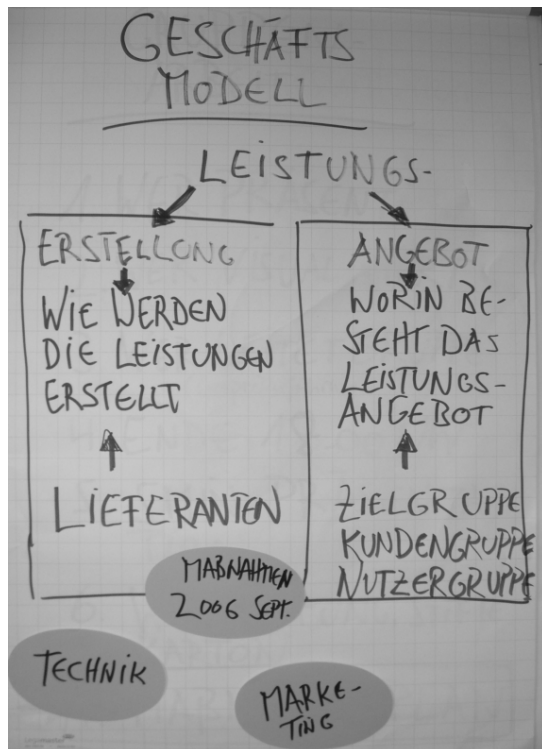 GESCHÄFTS
MODELL
LEISTUNGS-
ERSTELLUNG
WIE WERDEN
DIE LEISTUNGEN
ERSTELLT
LIEFERANTEN
ANGEBOT
WORIN BE-
STEHT DAS
LEISTUNGS-
ANGEBOT
ZIELGRUPPE
KUNDENGRUPPE
NUTZERGRUPPE
MAßNAHMEN
2006 SEPT.
TECHNIK
MARKE-
TING